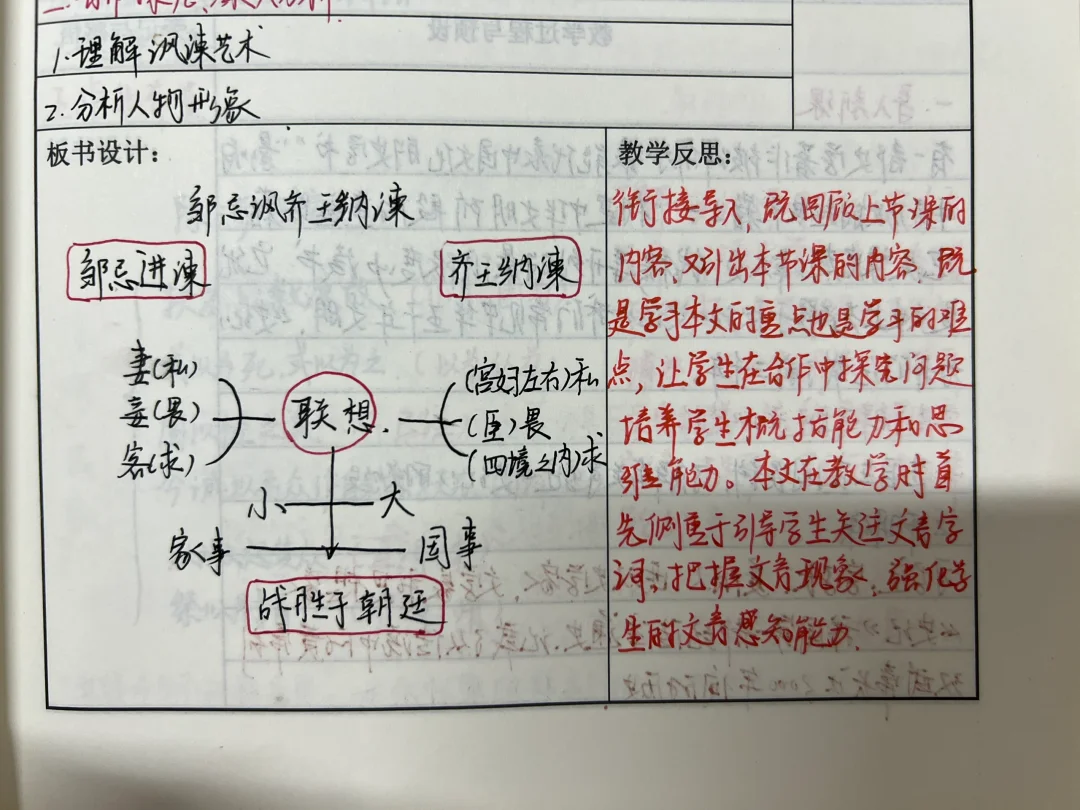 1.理解讽谏艺术
2.分析人物形象
板书设计：
邹忌讽齐王纳谏
邹忌进谏
齐王纳谏
妻(私)
妾(畏)
客(求)
联想
(宫妇左右)私
(臣)畏
(四境之内)求
小
大
家事
国事
战胜于朝廷
教学反思：
衔接导入,既回顾上节课的
内容,又引出本节课的内容,既
是学习本文的重点也是学习的难
点,让学生在合作中探究问题
培养学生概括能力和思
维能力。本文在教学时首
先侧重于引导学生关注文言字
词,把握文言现象,强化学
生的文言感知能力.